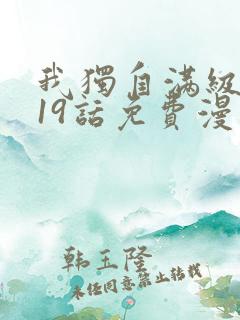 我獨自滿級
19話免費漫
韩玉隆
未经同意禁止转载